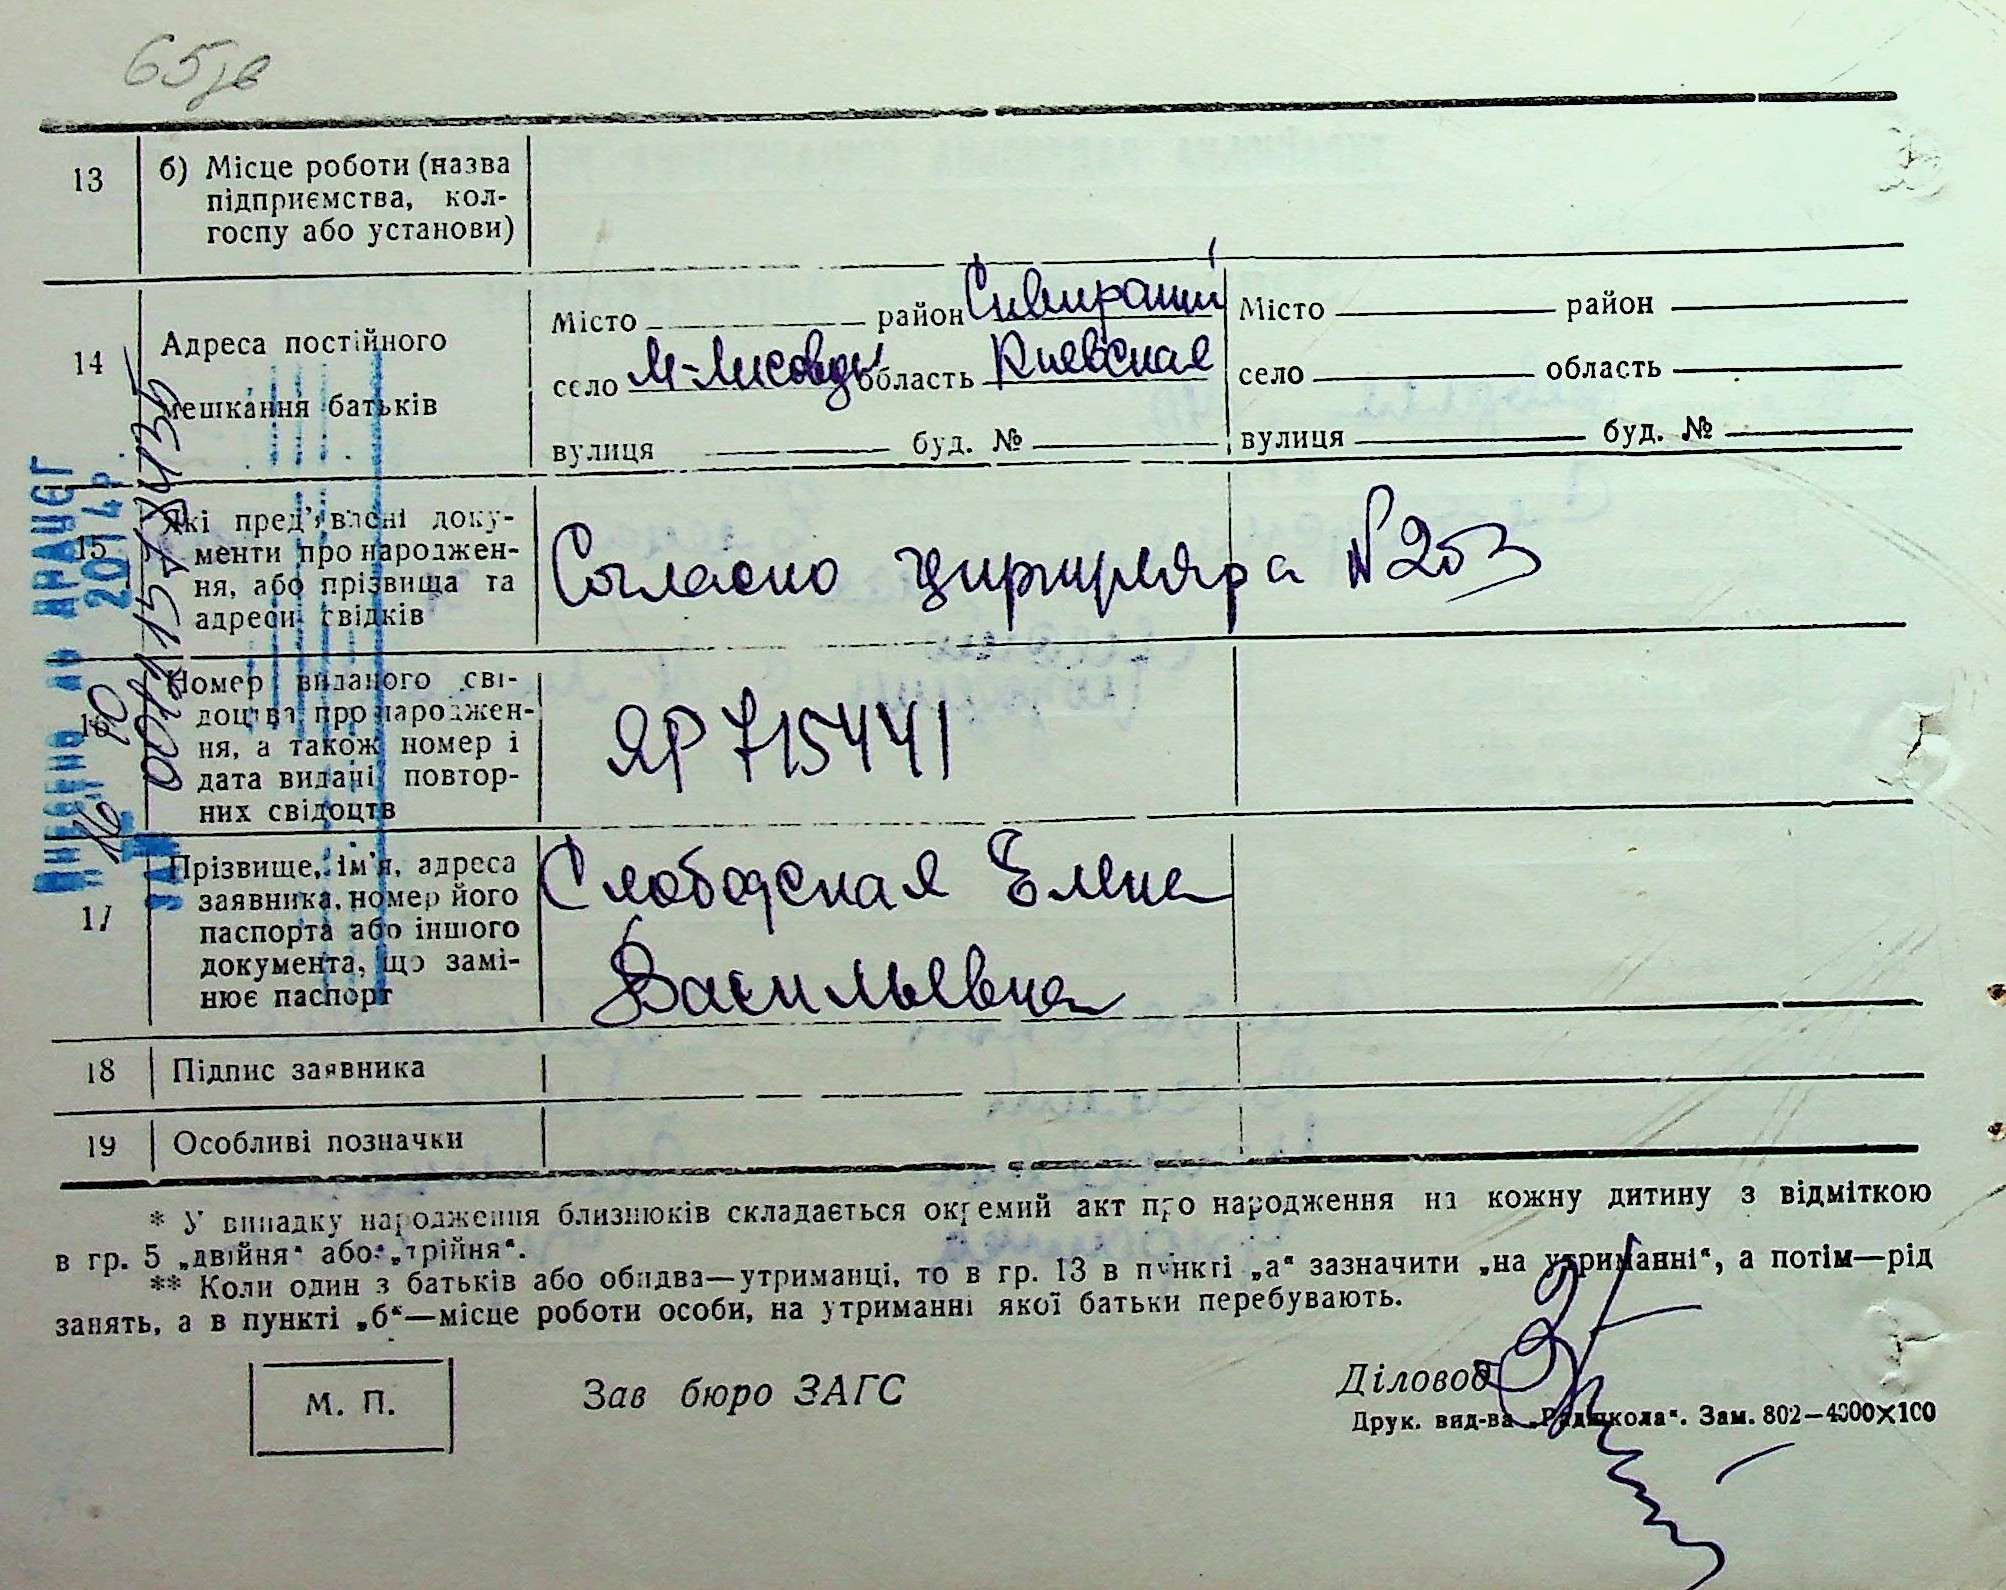 65зв
13 б) Місце роботи (назва
підприємства, кол-
госпу або установи)
14 Адреса постійного
мешкання батьків
Місто район
село М-Лисовцы область Киевская
вулиця буд. №
Місто район
село область
вулиця буд. №
15 Які пред'явлені доку-
менти про народжен-
ня, або прізвища та
адреси свідків
Согласно циркуляра №203
16 Номер виданого сві-
доцтва про народжен-
ня, а також номер і
дата видачі повтор-
них свідоцтв
ЯР 715441
17 Прізвище, ім'я, адреса
заявника, номер його
паспорта або іншого
документа, що замі-
нює паспорт
Слободская Елена
Васильевна
18 Підпис заявника
19 Особливі позначки
* У випадку народження близнюків складається окремий акт про народження на кожну дитину з відміткою
в гр. 5 „двійня" або „трійня".
** Коли один з батьків або обидва—утриманці, то в гр. 13 в пункті „а" зазначити „на утриманні", а потім—рід
занять, а в пункті „б"—місце роботи особи, на утриманні якої батьки перебувають.
М. П.
Зав бюро ЗАГС
Діловод
Друк. вид-ва „Рад. школа". Зам. 802—4000×100
ВНЕСЕНО ДО ДРАЦСГ
16 10 2014р.